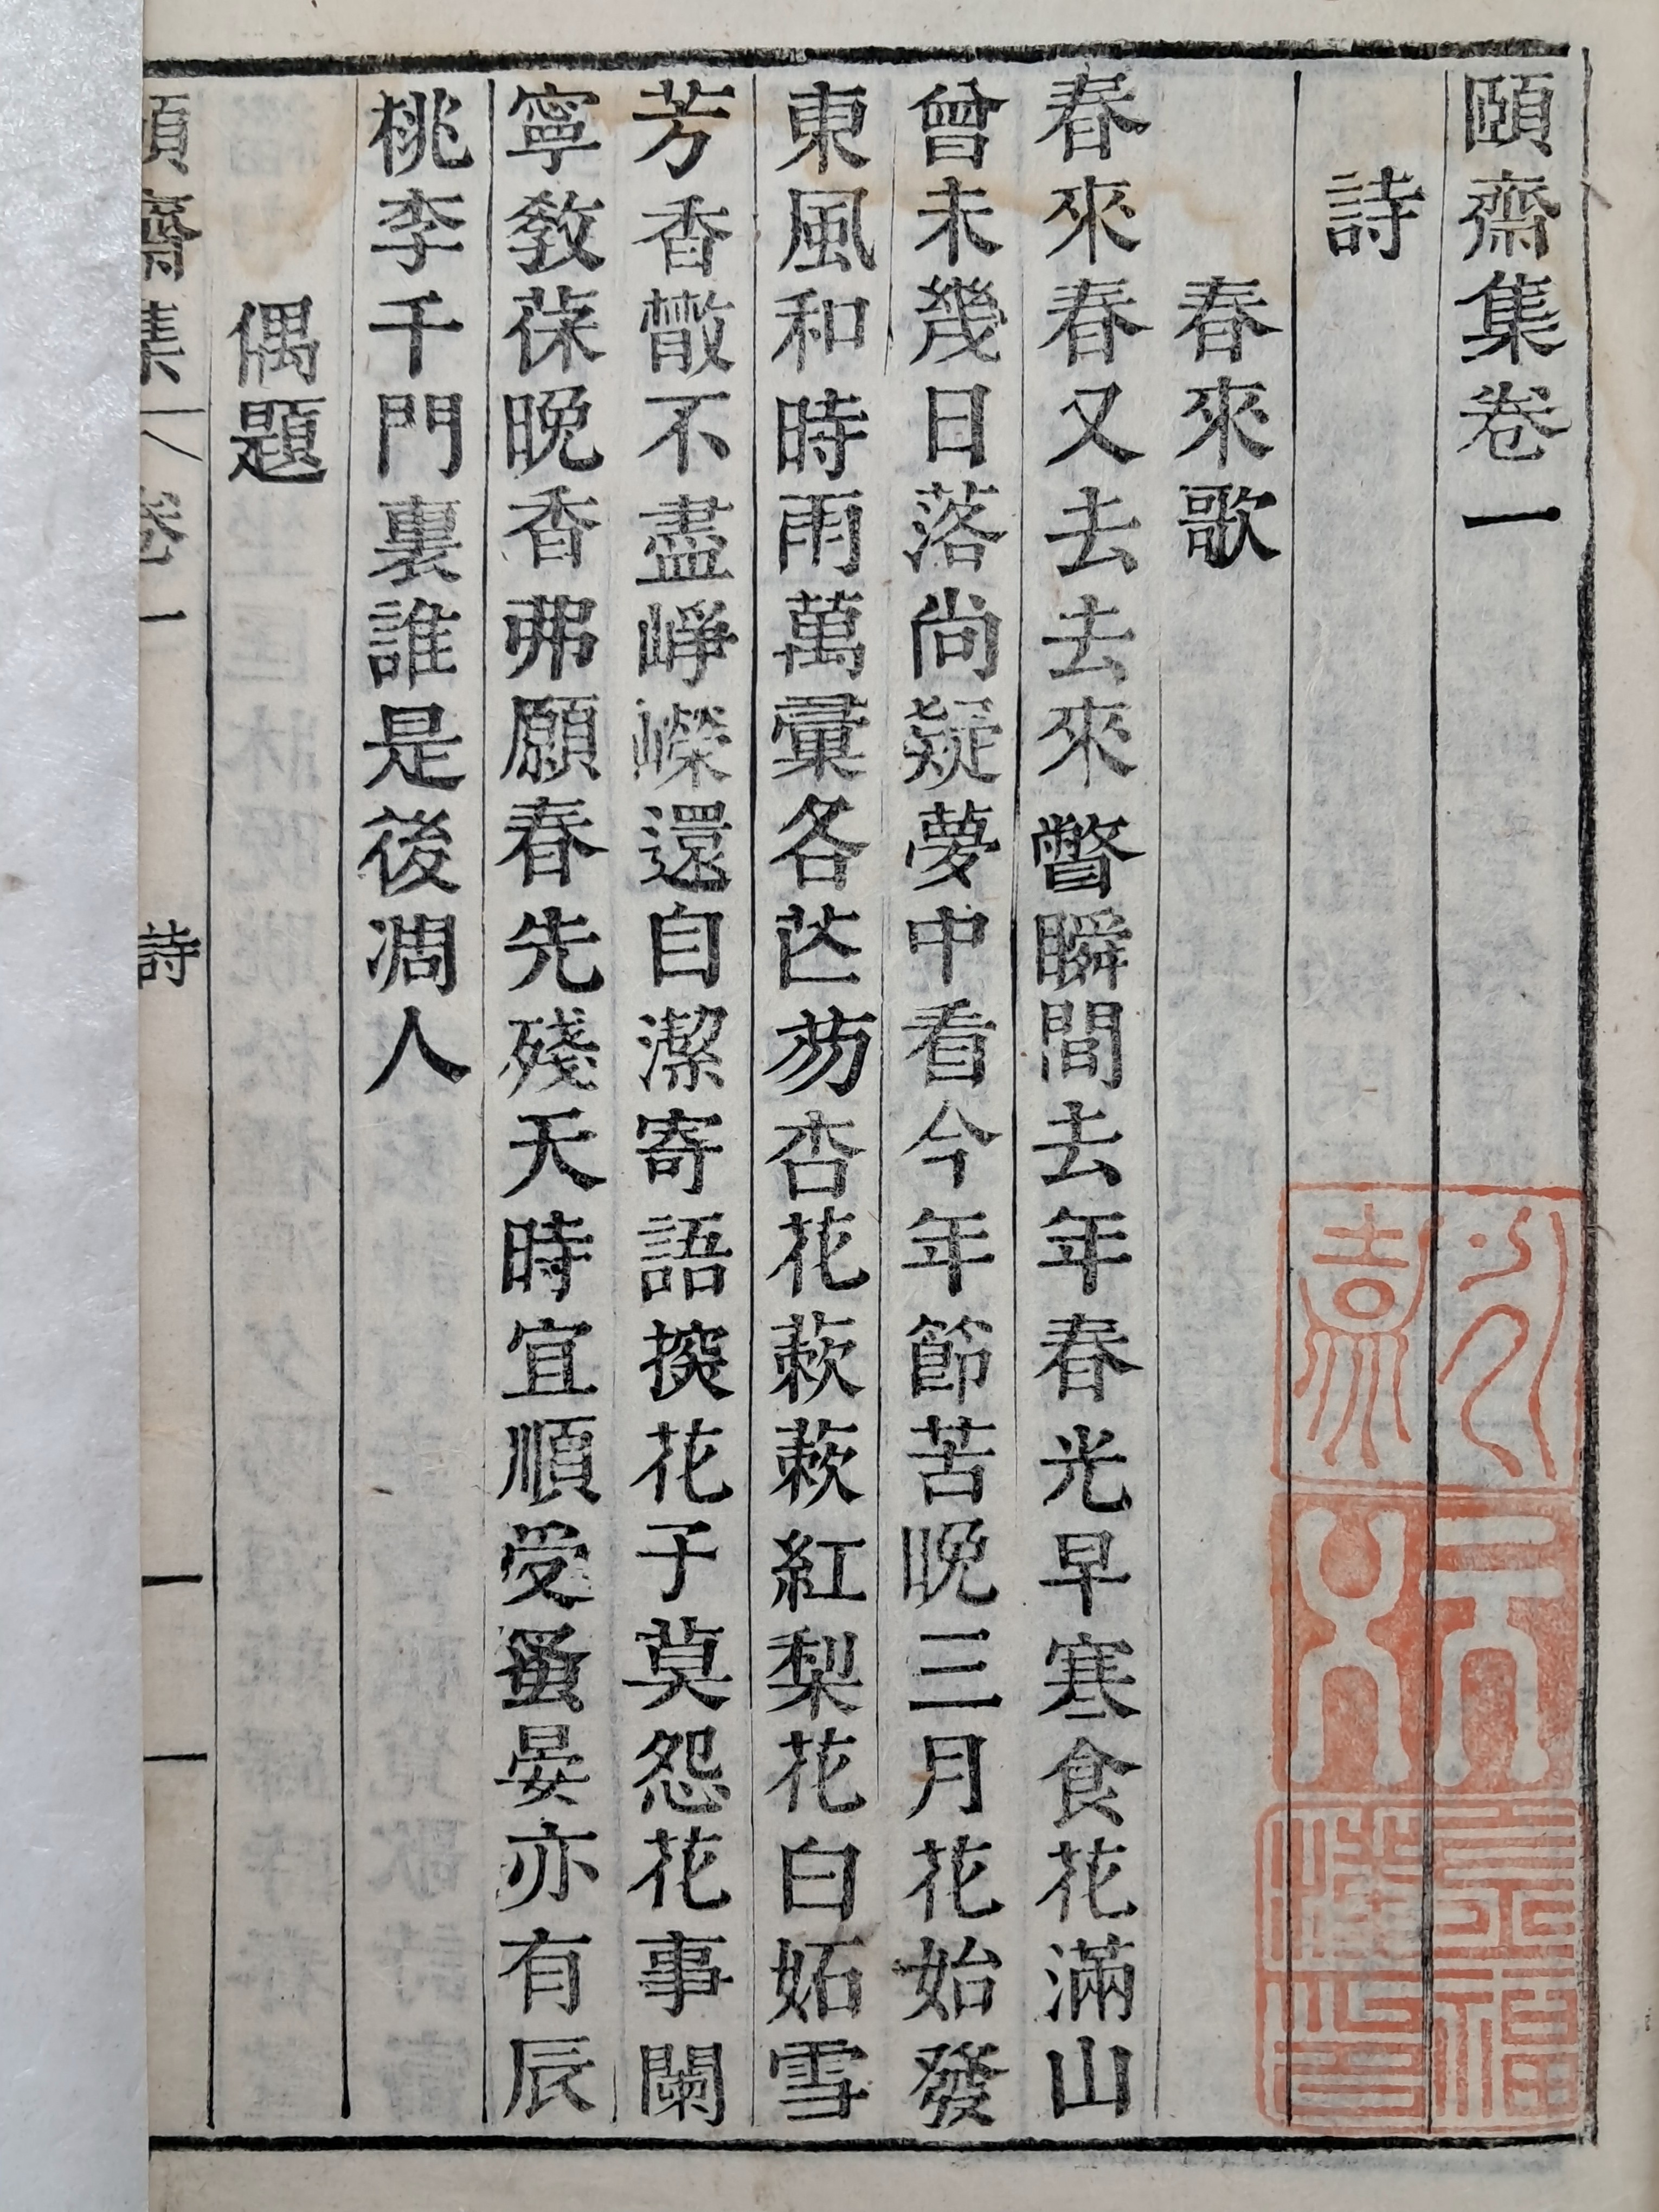 頤齋集卷一
詩
春來歌
春來春又去去來瞥瞬間去年春光早寒食花滿山
曾未幾日落尚疑夢中看今年節苦晩三月花始發
東風和時雨萬彙各芒芴杏花蔌蔌紅梨花白妬雪
芳香㪚不盡崢嶸還自潔寄語探花子莫怨花事闌
寧敎葆晩香弗願春先殘天時宜順受蚤晏亦有辰
桃李千門裏誰是後凋人
偶題
頤齋集 卷一 詩 一